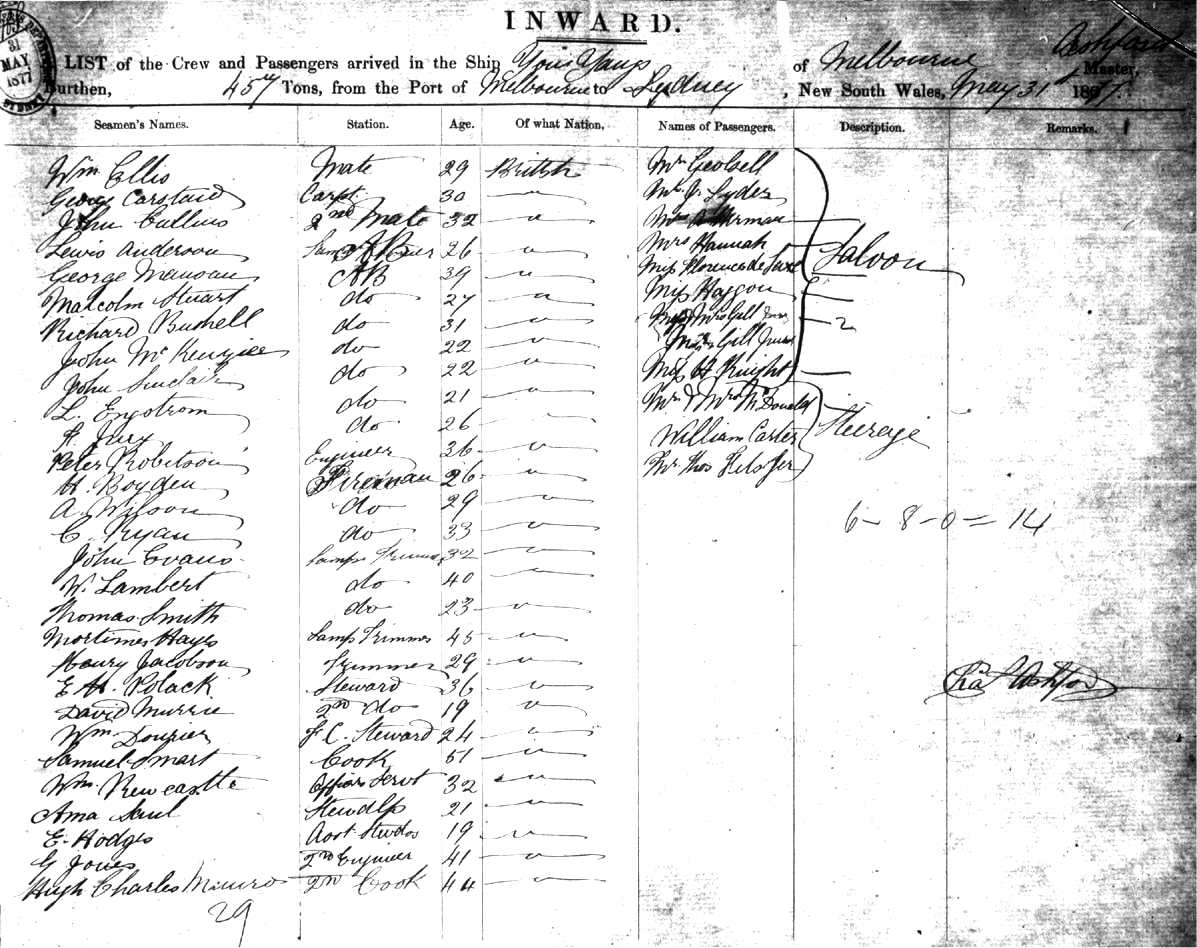 INWARD.
31
MAY
1877
SYDNEY
LIST of the Crew and Passengers arrived in the Ship You Yangs of Melbourne Ashford Master,
Burthen, 457 Tons, from the Port of Melbourne to Sydney, New South Wales, May 31 1877.
Seamen's Names. Station. Age. Of what Nation, Names of Passengers. Description. Remarks.
Wm Ellis Mate 29 British
George Carstaid Carpt. 30 "
John Cullins 2nd Mate 32 "
Lewis Anderson Lamps 26 "
George AB 39 "
Malcolm Stuart do 27 "
Richard Bushell do 31 "
John McKenzie do 22 "
John Sinclair do 22 "
L. Engstrom do 21 "
Jury do 26 "
Peter Robertson Engineer 36 "
H. Boyden Fireman 26 "
A. Wilson do 29 "
C. Ryan do 33 "
John Evans Lamps Trimmer 32 "
W. Lambert do 40 "
Thomas Smith do 23 "
Mortimer Hayes Lamp Trimmer 45 "
Henry Jacobson Trimmer 29 "
E. H. Polack Steward 36 "
David Murrie 2nd do 19 "
Wm F. C. Steward 24 "
Samuel Smart Cook 51 "
Wm Newcastle Officers Servt 32 "
Ama Saul Stewdss 21 "
E. Hodges Asst Stwdss 19 "
G Jones 2nd Engineer 41 "
Hugh Charles Munro 2nd Cook 44 "
29
Mr
Mr J. Lyder
Mrs Hannah
Miss Florence de
Miss Haggon
Mrs Gill
Gill Junr
Miss H Knight
Saloon
2
Mr & Mrs McDonald
William Carter
Mr Thos
Steerage
6 - 8 - 0 = 14
Chas Ashford